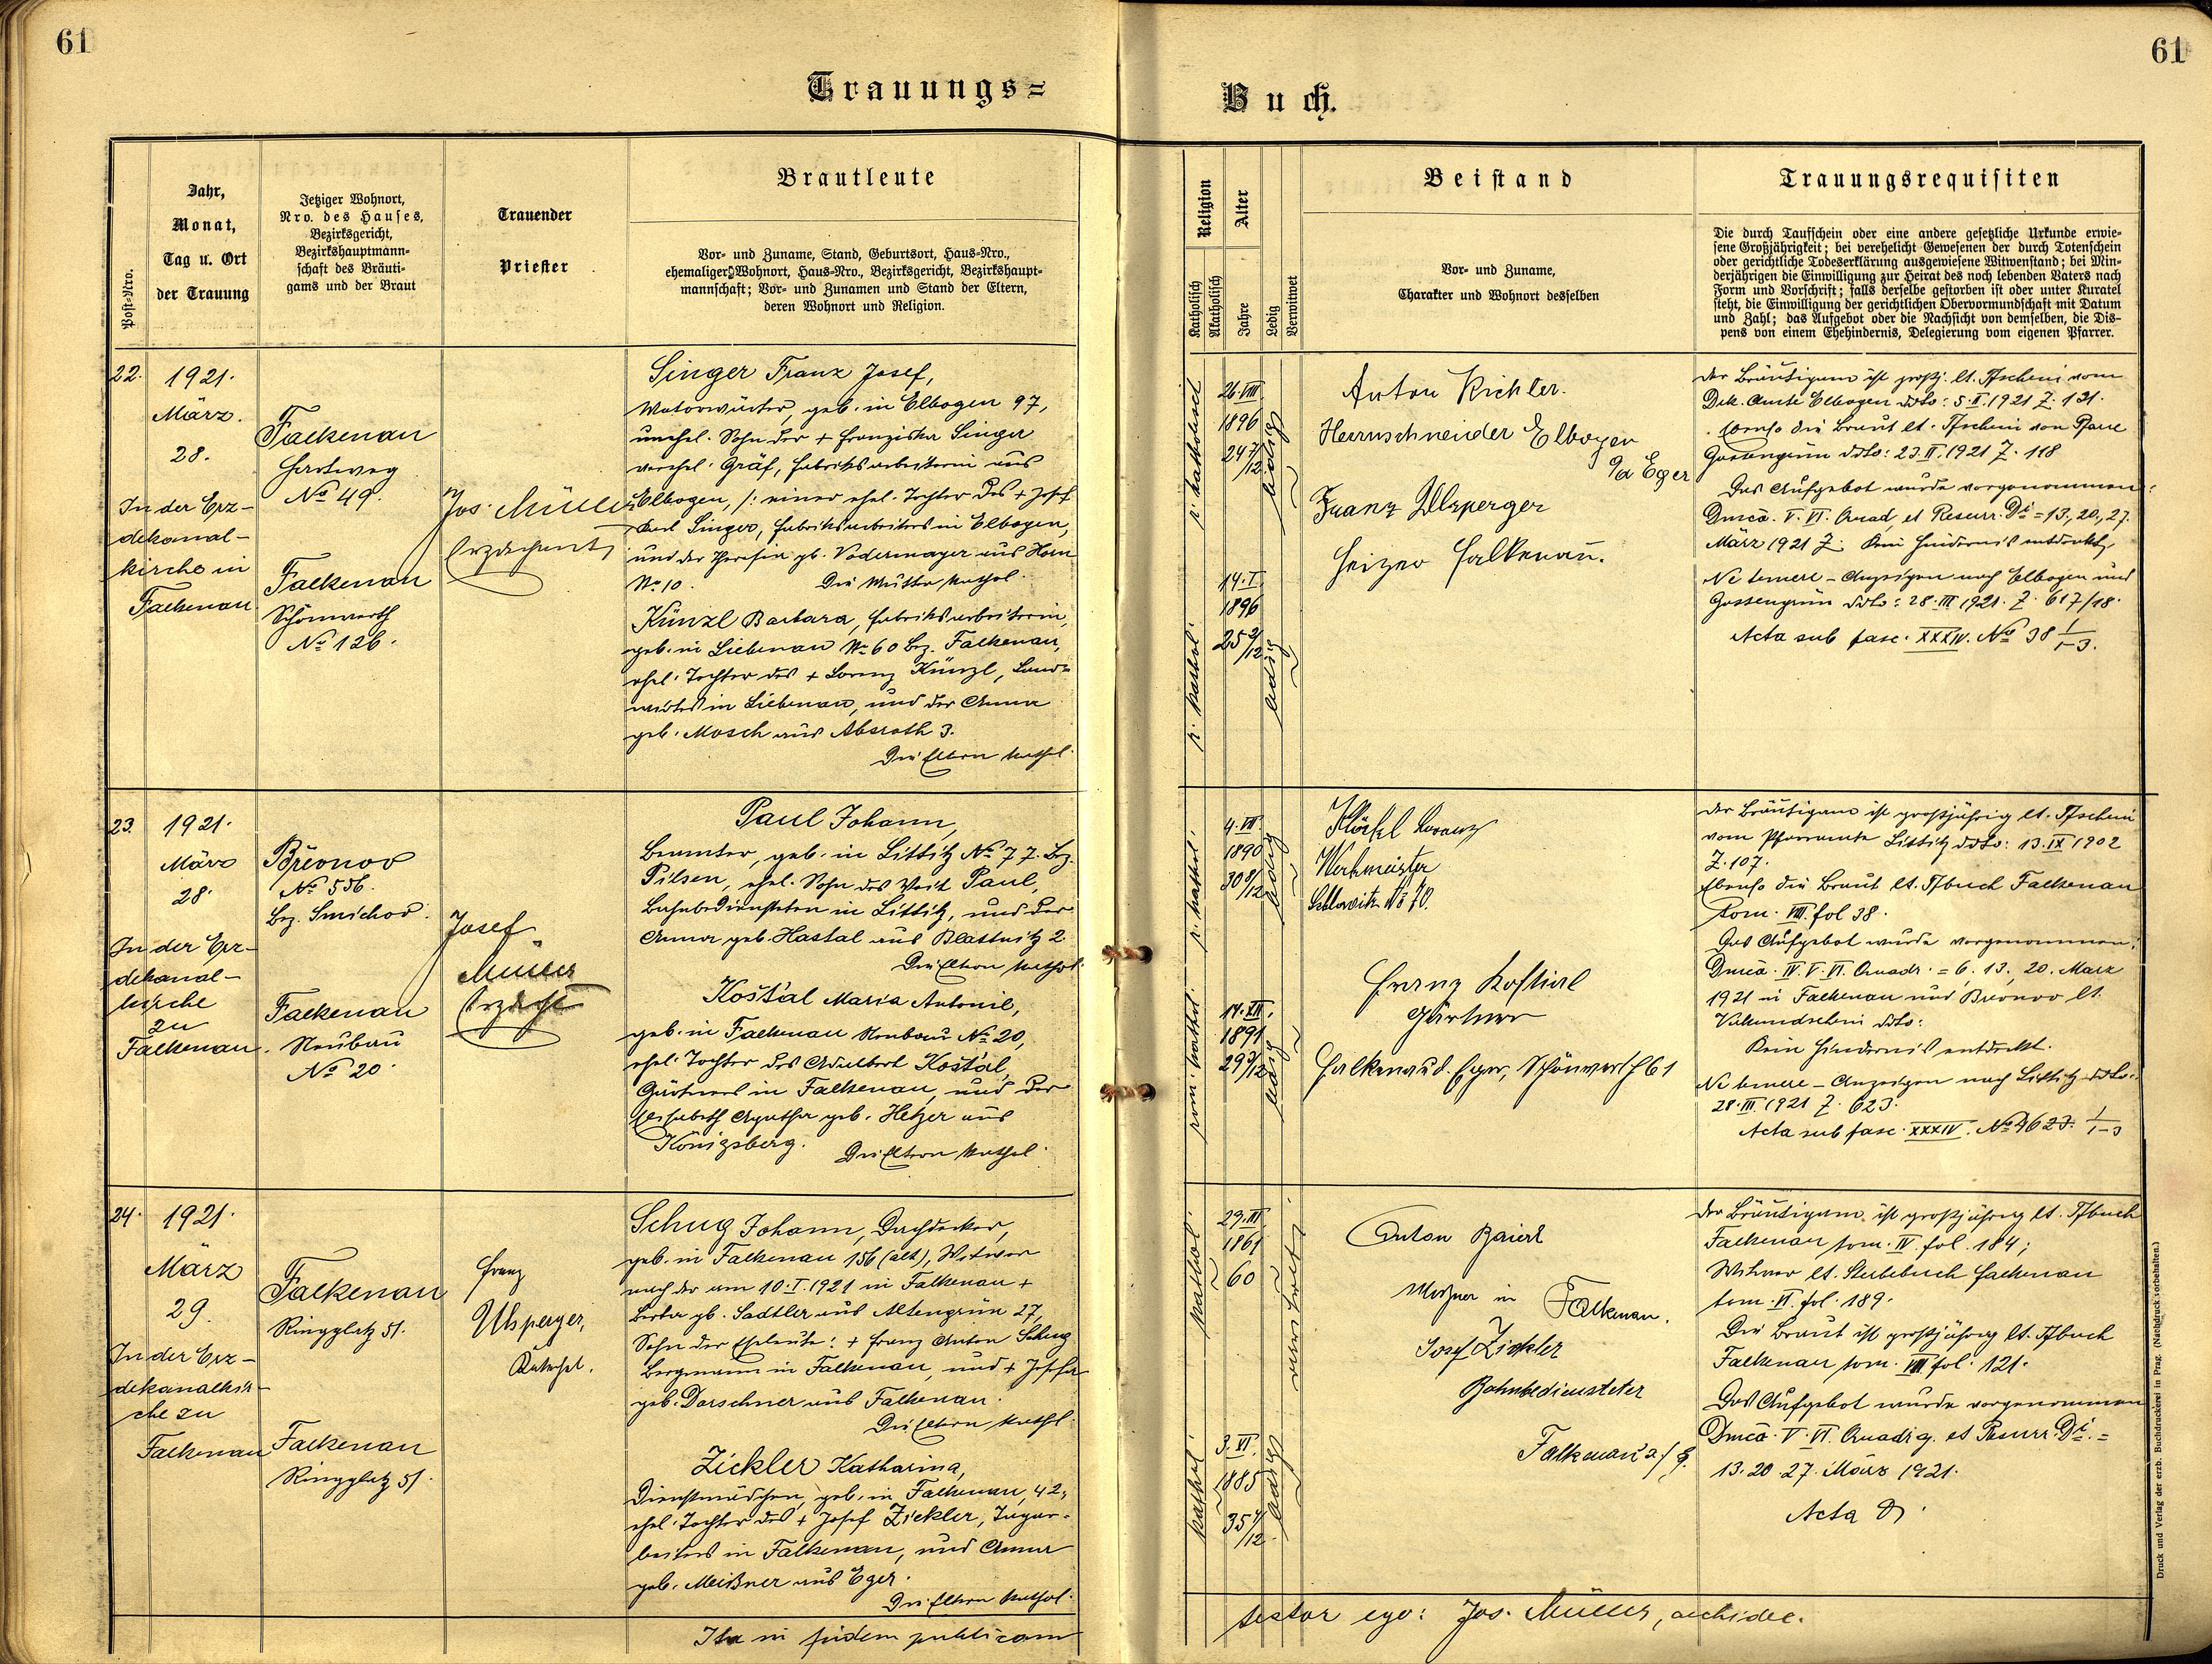 61
61
Trauungs=
Buch.
Post-Nro.
Jahr,
Monat,
Tag u. Ort
der Trauung
Jetziger Wohnort,
Nro. des Hauses,
Bezirksgericht,
Bezirkshauptmann-
schaft des Bräuti-
gams und der Braut
Trauender
Priester
Brautleute
Vor- und Zuname, Stand, Geburtsort, Haus-Nro.,
ehemaliger Wohnort, Haus-Nro., Bezirksgericht, Bezirkshaupt-
mannschaft; Vor- und Zunamen und Stand der Eltern,
deren Wohnort und Religion.
Religion
Katholisch
Akatholisch
Alter
Jahre
Ledig
Verwitwet
Beistand
Vor- und Zuname,
Charakter und Wohnort desselben
Trauungsrequisiten
Die durch Taufschein oder eine andere gesetzliche Urkunde erwie-
sene Großjährigkeit; bei verehelicht Gewesenen der durch Totenschein
oder gerichtliche Todeserklärung ausgewiesene Witwenstand; bei Min-
derjährigen die Einwilligung zur Heirat des noch lebenden Vaters nach
Form und Vorschrift; falls derselbe gestorben ist oder unter Kuratel
steht, die Einwilligung der gerichtlichen Obervormundschaft mit Datum
und Zahl; das Aufgebot oder die Nachsicht von demselben, die Dis-
pens von einem Ehehindernis, Delegierung vom eigenen Pfarrer.
22.
1921.
März.
28.
In der Erz-
dekanal-
kirche in
Falkenau
Falkenau
Hartweg
No 49.
Falkenau
Schönwerth
No 126.
Jos. Müller
Erzdechant
Singer Franz Josef,
geb. in Elbogen 97,
unehel. Sohn der + Franziska Singer
verehel. Gräf, Fabriksarbeiterin aus
Elbogen, /: einer ehel. Tochter des + Josef
Karl Singer, Fabriksarbeiters in Elbogen,
und der Theresia gb. Vodermayer aus Horn
No 10. Die Mutter kathol.
Künzl Barbara, Fabriksarbeiterin,
geb. in Liebenau No 60 Bez. Falkenau,
ehel. Tochter des + Lorenz Künzl, Land-
wirtes in Liebenau, und der Anna
geb. Mosch aus Absroth 3.
Die Eltern kathol.
r. katholisch
26.VIII.
1896
24 7/12
ledig
r. kathol.
14.I.
1896
25 2/12
ledig
Anton Richler.
Herrnschneider Elbogen
a/d Eger
Franz Ulsperger
Heizer Falkenau.
Der Bräutigam ist großj. lt. Tfschein vom
Dek. Amte Elbogen ddto: 5.II.1921 Z. 131.
Ebenso die Braut lt. Tfschein von Pfarre
Gossengrün ddto: 23.II.1921 Z. 118
Das Aufgebot wurde vorgenommen:
Dnica. V. VI. Quad. et Resurr. Di = 13., 20., 27.
März 1921 Z. Kein Hindernis entdeckt.
Ne temere - Anzeigen nach Elbogen und
Gossengrün ddto: 28.III.1921. Z. 617/18.
Acta sub fasc. XXXIV. No 38 1/1-3.
23.
1921.
März
28.
In der Erz-
dekanal-
kirche
zu
Falkenau.
Břevnov
No 556.
Bez. Smichov.
Falkenau
Neubau
No 20.
Josef
Müller
Erzdcht
Paul Johann,
Beamter, geb. in Littitz No 77. Bez.
Pilsen, ehel. Sohn des Veit Paul,
Bahnbediensteten in Littitz, und der
Anna geb. Hastal aus Blattnitz 2.
Die Eltern kathol.
Košťal Maria Antonie,
geb. in Falkenau Neubau No 20,
ehel. Tochter des Adalbert Košťál,
Gärtners in Falkenau, und der
Elisabeth Agatha geb. Hetzer aus
Königsberg. Die Eltern kathol.
r. kathol.
4.VII.
1890
30 8/12
ledig
röm. kathol.
14.XII.
1891
29 3/12
ledig
Werkmeister
Franz Kostial
Gärtner
Falkenau d. Eger, Schönwerth 61
Der Bräutigam ist großjährig lt. Tfschein
vom Pfarramte Littitz ddto: 13.IX 1902
Z. 107.
Ebenso die Braut lt. Tfbuch Falkenau
tom. VIII. fol 38.
Das Aufgebot wurde vorgenommen:
Dnica. IV. V. VI. Quadr. = 6., 13., 20. März
1921 in Falkenau und Břevnov lt.
Verkundschein ddto:
Kein Hindernis entdeckt.
Ne temere - Anzeigen nach Littitz ddto:
28.III.1921 Z. 623.
Acta sub fasc. XXXIV. No 4623. 1/1-3
24.
1921.
März
29.
In der Erz-
dekanalkir-
che zu
Falkenau
Falkenau
Ringplatz 51.
Falkenau
Ringplatz 51.
Franz
Ulsperger,
Katechet.
Schug Johann, Dachdecker,
geb. in Falkenau 156 (alt), Witwer
nach der am 10.I.1921 in Falkenau +
gb. Sadtler aus Altengrün 27,
Sohn der Eheleute: + Franz Anton Schug
Bergmann in Falkenau, und + Josefa
geb. Dorschner aus Falkenau.
Die Eltern kathol.
Zickler Katharina,
Dienstmädchen, geb. in Falkenau, 42,
ehel. Tochter des + Josef Zickler, Tagar-
beiters in Falkenau, und Anna
geb. Meißner aus Eger.
Die Eltern kathol.
kathol.
29.III.
1861
60
verwitwet
kathol.
3.VI.
1885
35 9/12.
ledig
Anton Baierl
Meßner in Falkenau.
Josef Zickler
Bahnbediensteter
Falkenau a/E.
Der Bräutigam ist großjährig lt. Tfbuch
Falkenau tom. IV fol. 184;
Witwer lt. Sterbebuch Falkenau
tom. VI. fol. 189.
Die Braut ist großjährig lt. Tfbuch
Falkenau tom. VIII fol. 121.
Das Aufgebot wurde vorgenommen
Dnica. V. VI. Quadrg. et Resurr. Di. =
13. 20. 27. März 1921.
Acta
Ita in fidem publicam
testor ego: Jos. Müller, archidec.
Druck und Verlag der erzb. Buchdruckerei in Prag. (Nachdruck vorbehalten.)